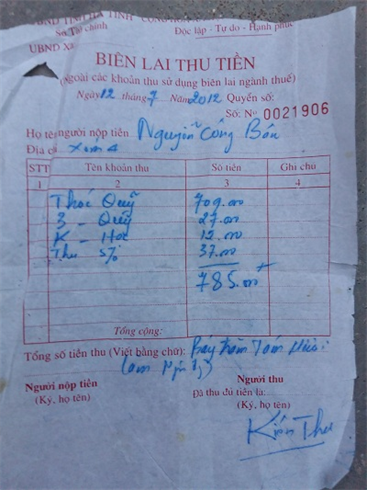 UBND TỈNH HÀ TĨNH CỘNG HÒA
Sở Tài chính Độc lập - Tự do - Hạnh phúc
UBND Xã
BIÊN LAI THU TIỀN
(Ngoài các khoản thu sử dụng biên lai ngành thuế)
Ngày 12 tháng 7 Năm 2012 Quyển số:
Số: Nº 0021906
Họ tên người nộp tiền Nguyễn Công Bốn
Địa chỉ Xóm 4
STT Tên khoản thu Số tiền Ghi chú
1 2 3 4
Thóc Quỹ 709.000
3 - Quỹ 27.000
K - Hoạ 12.000
Thu 5% 37.000
785.000
Tổng cộng:
Tổng số tiền thu (Viết bằng chữ): Bảy trăm Tám Mươi
Người nộp tiền Người thu
(Ký, họ tên) Đã thu đủ tiền
(Ký, họ tên)